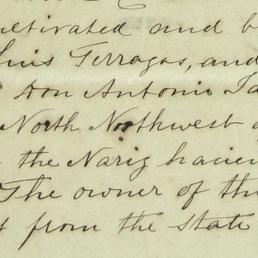 ultivated and b
Luis Terragas, and
Don Antonio Ja
North Northwest
the Nariz hacien
The owner of th
from the state